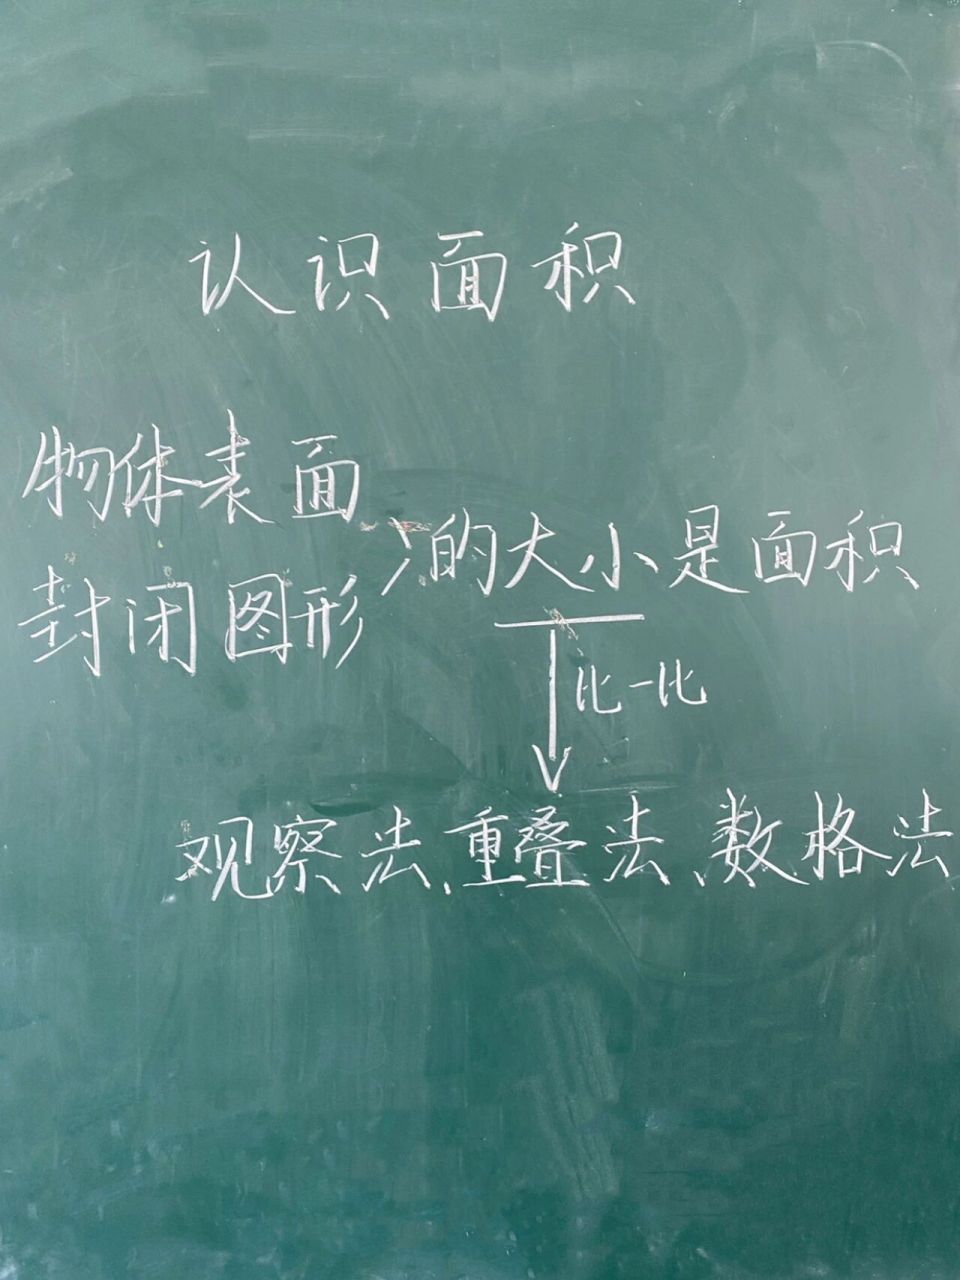 认识面积
物体表面
封闭图形
}的大小是面积
比一比
观察法、重叠法、数格法